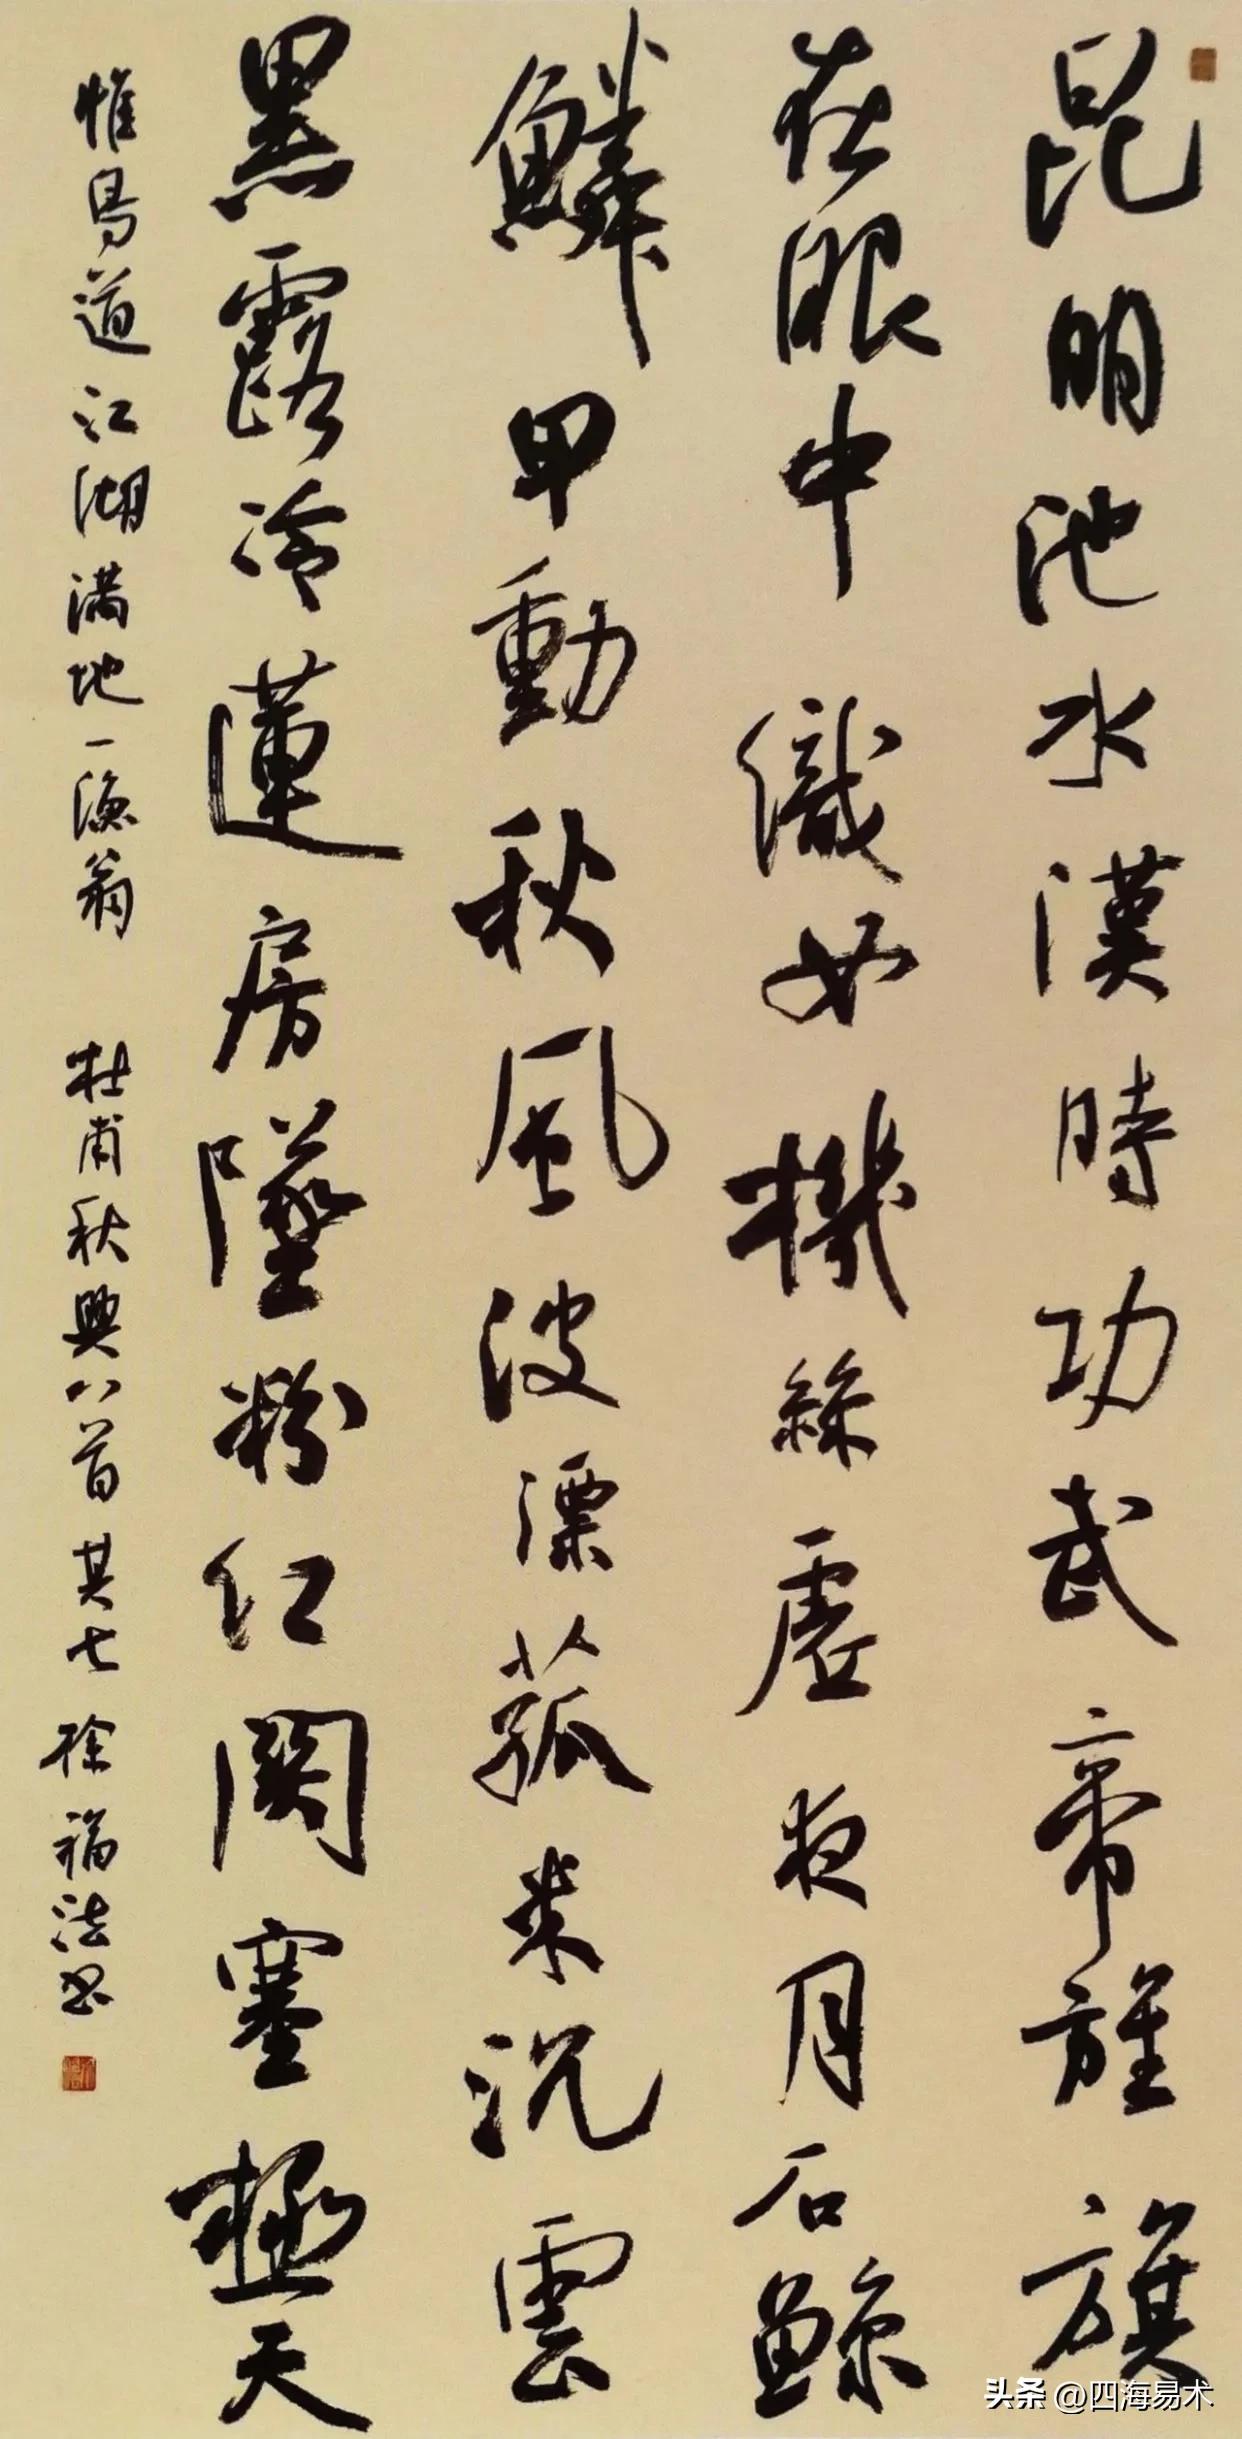 昆明池水漢時功武帝旌旗
在眼中織女機絲虛夜月石鯨
鱗甲動秋風波漂菰米沉雲
黑露冷蓮房墜粉红關塞極天
惟鳥道江湖满地一漁翁 杜甫秋興八首其七 徐福法书
头条 @四海易术